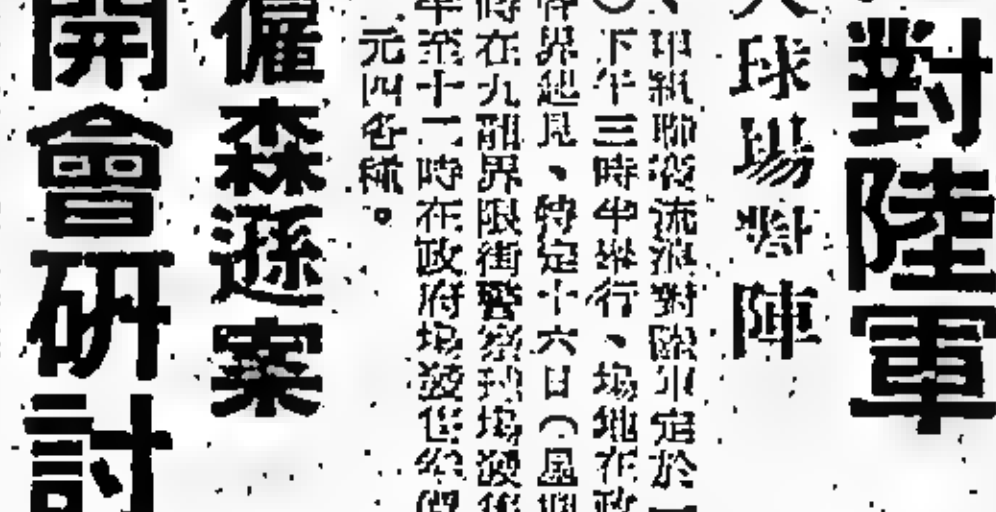 對陸軍
球場對陣
甲組聯發流浪對陸軍定於一
下午三時半舉行、場地在政
界起見、特定十六日(星期
時在九龍界限街警察球場發售
年至十二時在政府場發售公價
元四各種。
僱森遜案
開會研討